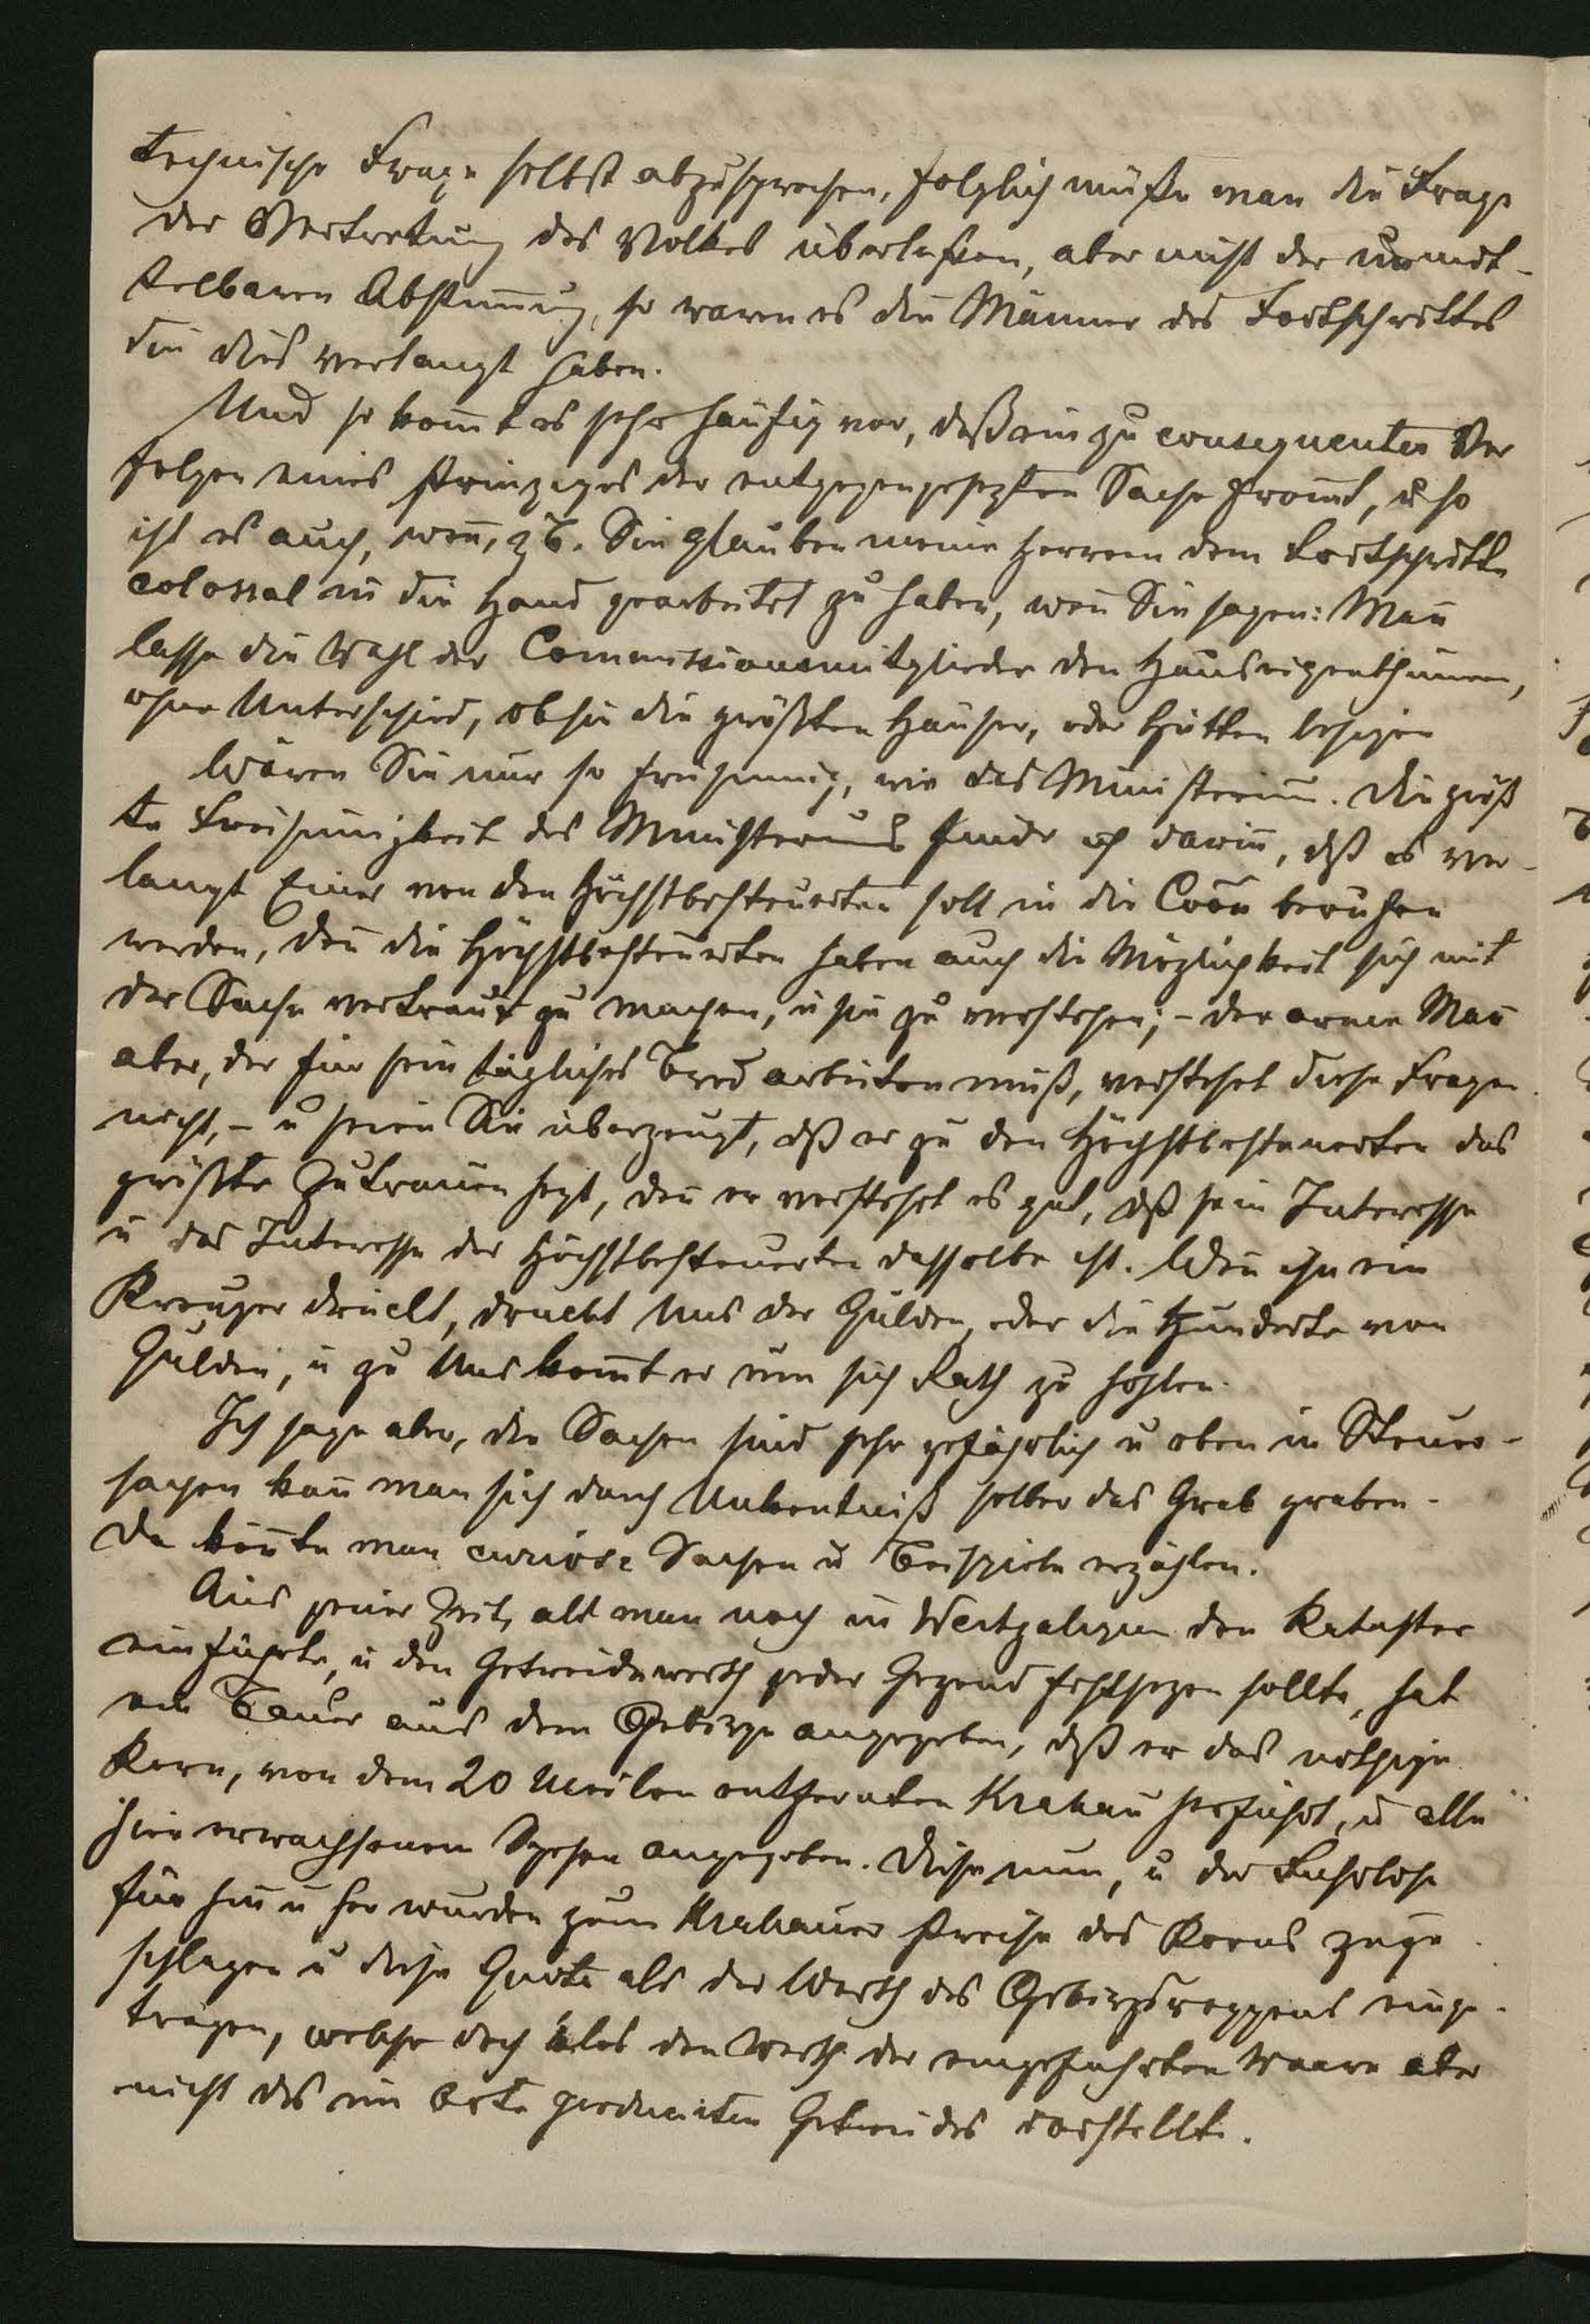 technische Frage selbst abzusprechen, folglich müße man die Frage
der Vertretung des Volkes überlaßen, aber nicht der unmit-
telbaren Abstim̄ung, so waren es die Männer des Fortschrittes
die dies verlangt haben.
Und so kom̄t es sehr häufig vor, daß ein zu consequentes Ver
folgen eines Prinzipes der entgegengesezten Sache from̄t, u so
ist es auch, wen̄, zB. Sie glauben meine Herren dem Fortschritte
colossal in die Hand gearbeitet zu haben, wen̄ Sie sagen: Man
lasse die Wahl der Commissionsmitglieder den Hauseigenthümern,
ohne Unterschied, ob sie die größten Häuser, oder Hütten besizen
Wären Sie nur so freisinnig, wie das Ministerium. Die größ
te Freisinnigkeit des Ministeriums finde ich darin̄, dß es ver-
langt Einer von den Höchstbesteuerten soll in die Coōn berufen
werden, den̄ die Höchstbesteuerten haben auch die Möglichkeit sich mit
der Sache vertraut zu machen, u sie zu verstehen; - der arme Man̄
aber, der für sein tägliches Brod arbeiten muß, verstehet diese Fragen
nicht, - u seien Sie überzeugt, dß er zu den Höchstbesteuerten das
größte Zutrauen hegt, den̄ er verstehet es gut, dß sein Interesse
u das Interesse der Höchstbesteuerten dasselbe ist. Wen̄ ihn ein
Kreuzer drückt, drückt Uns der Gulden, oder die Hunderte von
Gulden, u zu Uns kom̄t er um sich Rath zu hohlen.
Ich sage aber, die Sachen sind sehr gefährlich u eben in Steuer-
sachen kan̄ man sich durch Unkentniß selber das Grab graben.
Da kön̄te man curiose Sachen u Beispiele erzählen.
Aus jener Zeit, als man noch in Westgalizien den Kataster
einführte, u den Getreidewerth jeder Gegend festsezen sollte, hat
ein Bauer aus dem Gebirge angegeben, dß er das nöthige
Korn, von dem 20 Meilen entfernten Krakau herführt, u alle
ihm erwachsenen Spesen angegeben. Diese nun, u der Fuhrlohn
für hin u her wurden zum Krakauer Preise des Korns zuge
schlagen u diese Quote als der Werth des Gebirgsroggens einge-
tragen, welche doch blos den Werth der eingeführten Waare aber
nicht des im Orte producirten Getreides vorstellte.